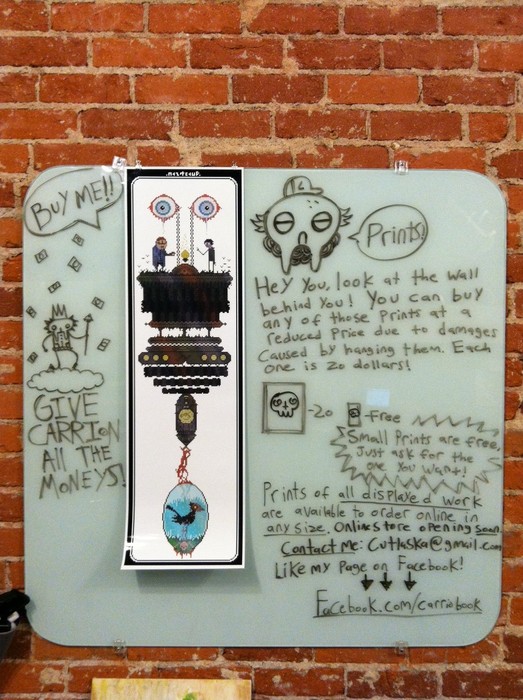 BUY ME!!
GIVE
CARRION
ALL THE
MONEYS!
Prints!
Hey You, look at the wall
behind You! You can buy
any of those Prints at a
reduced Price due to damages
Caused by hanging them. Each
one is 20 dollars!
-20
-Free
Small Prints are free,
Just ask for the
one You Want!
Prints of all displayed work
are available to order online in
any size. Online store opening soon.
Contact me: Cutlaska@gmail.com
Like my Page on Facebook!
Facebook.com/carriobook